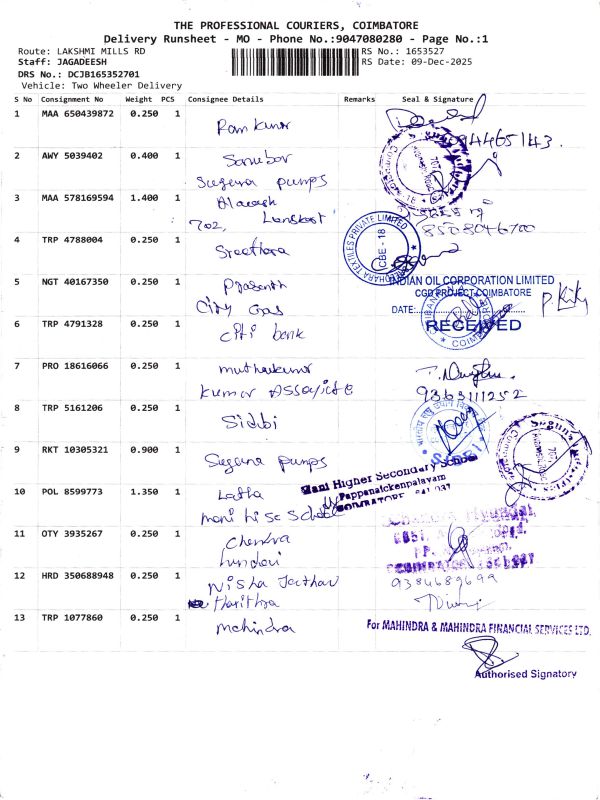 THE PROFESSIONAL COURIERS, COIMBATORE
Delivery Runsheet - MO - Phone No.:9047080280 - Page No.:1
Route: LAKSHMI MILLS RD
RS No.: 1653527
Staff: JAGADEESH
RS Date: 09-Dec-2025
DRS No.: DCJB165352701
Vehicle: Two Wheeler Delivery
S No Consignment No Weight PCS Consignee Details Remarks Seal & Signature
1 MAA 650439872 0.250 1 Ram kumar
2 AWY 5039402 0.400 1
Suguna pumps
3 MAA 578169594 1.400 1
702,
8508046700
4 TRP 4788004 0.250 1 Sreethara
CBE - 18
5 NGT 40167350 0.250 1 Prasanth
City Gas
INDIAN OIL CORPORATION LIMITED
CGD PROJECT COIMBATORE
DATE:
RECEIVED
6 TRP 4791328 0.250 1 citi bank
7 PRO 18616066 0.250 1 muthukumar
kumar Assoyiate
9363111252
8 TRP 5161206 0.250 1 Sidbi
SIDBI
9 RKT 10305321 0.900 1 Suguna pumps
10 POL 8599773 1.350 1 Latha
mani hi sc School
Mani Higher Secondary School
Pappanaickenpalayam
COIMBATORE - 641 037
11 OTY 3935267 0.250 1 Chendra
hundai
12 HRD 350688948 0.250 1 Nisha
Harithra
9384689699
13 TRP 1077860 0.250 1 mahindra
For MAHINDRA & MAHINDRA FINANCIAL SERVICES LTD.
Authorised Signatory